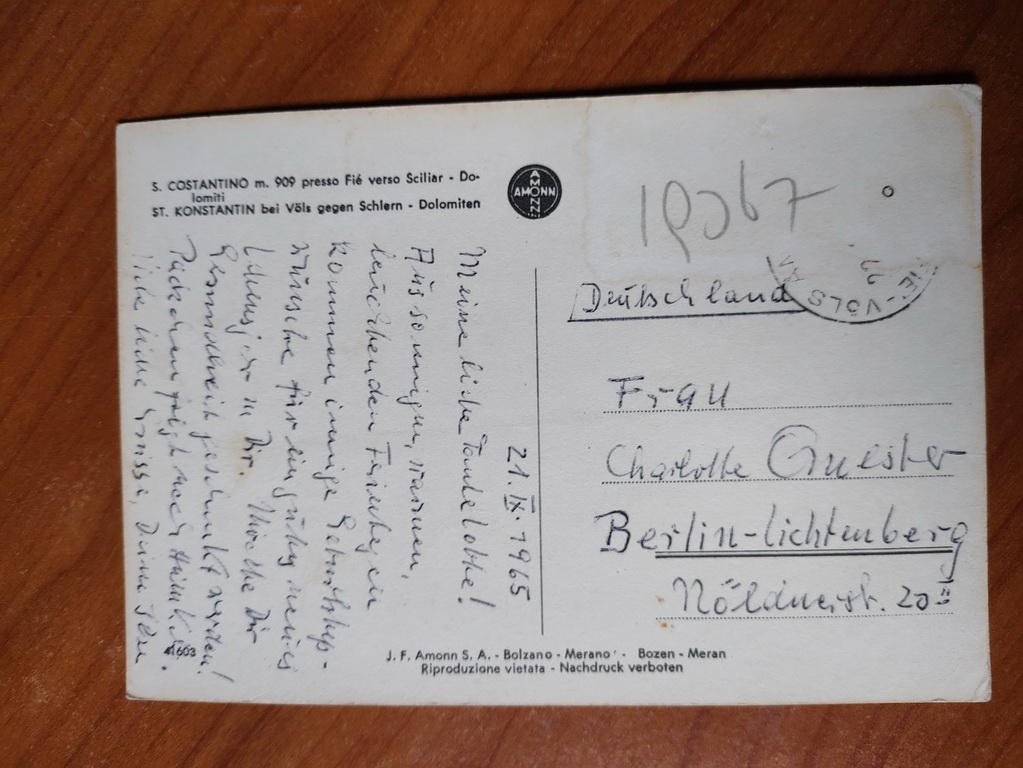 S. COSTANTINO m. 909 presso Fié verso Sciliar - Do-
lomiti
ST. KONSTANTIN bei Völs gegen Schlern - Dolomiten
AMONN
AMONN
21. IX. 1965
Meine liebe Tante Lotte!
Aus sonnigen, warmen,
leuchtenden Ferientagen
kommen innige Geburtstags-
wünsche für ein gutes neues
Lebensjahr zu Dir. Möge Dir
Gesundheit geschenkt werden!
Päckchen folgt nach
Viele liebe Grüsse, Deine
41603
19367
FIE - VÖLS
Deutschland
Frau
Charlotte
Berlin-Lichtenberg
Nöldnerstr. 20
J. F. Amonn S. A. - Bolzano - Merano - Bozen - Meran
Riproduzione vietata - Nachdruck verboten